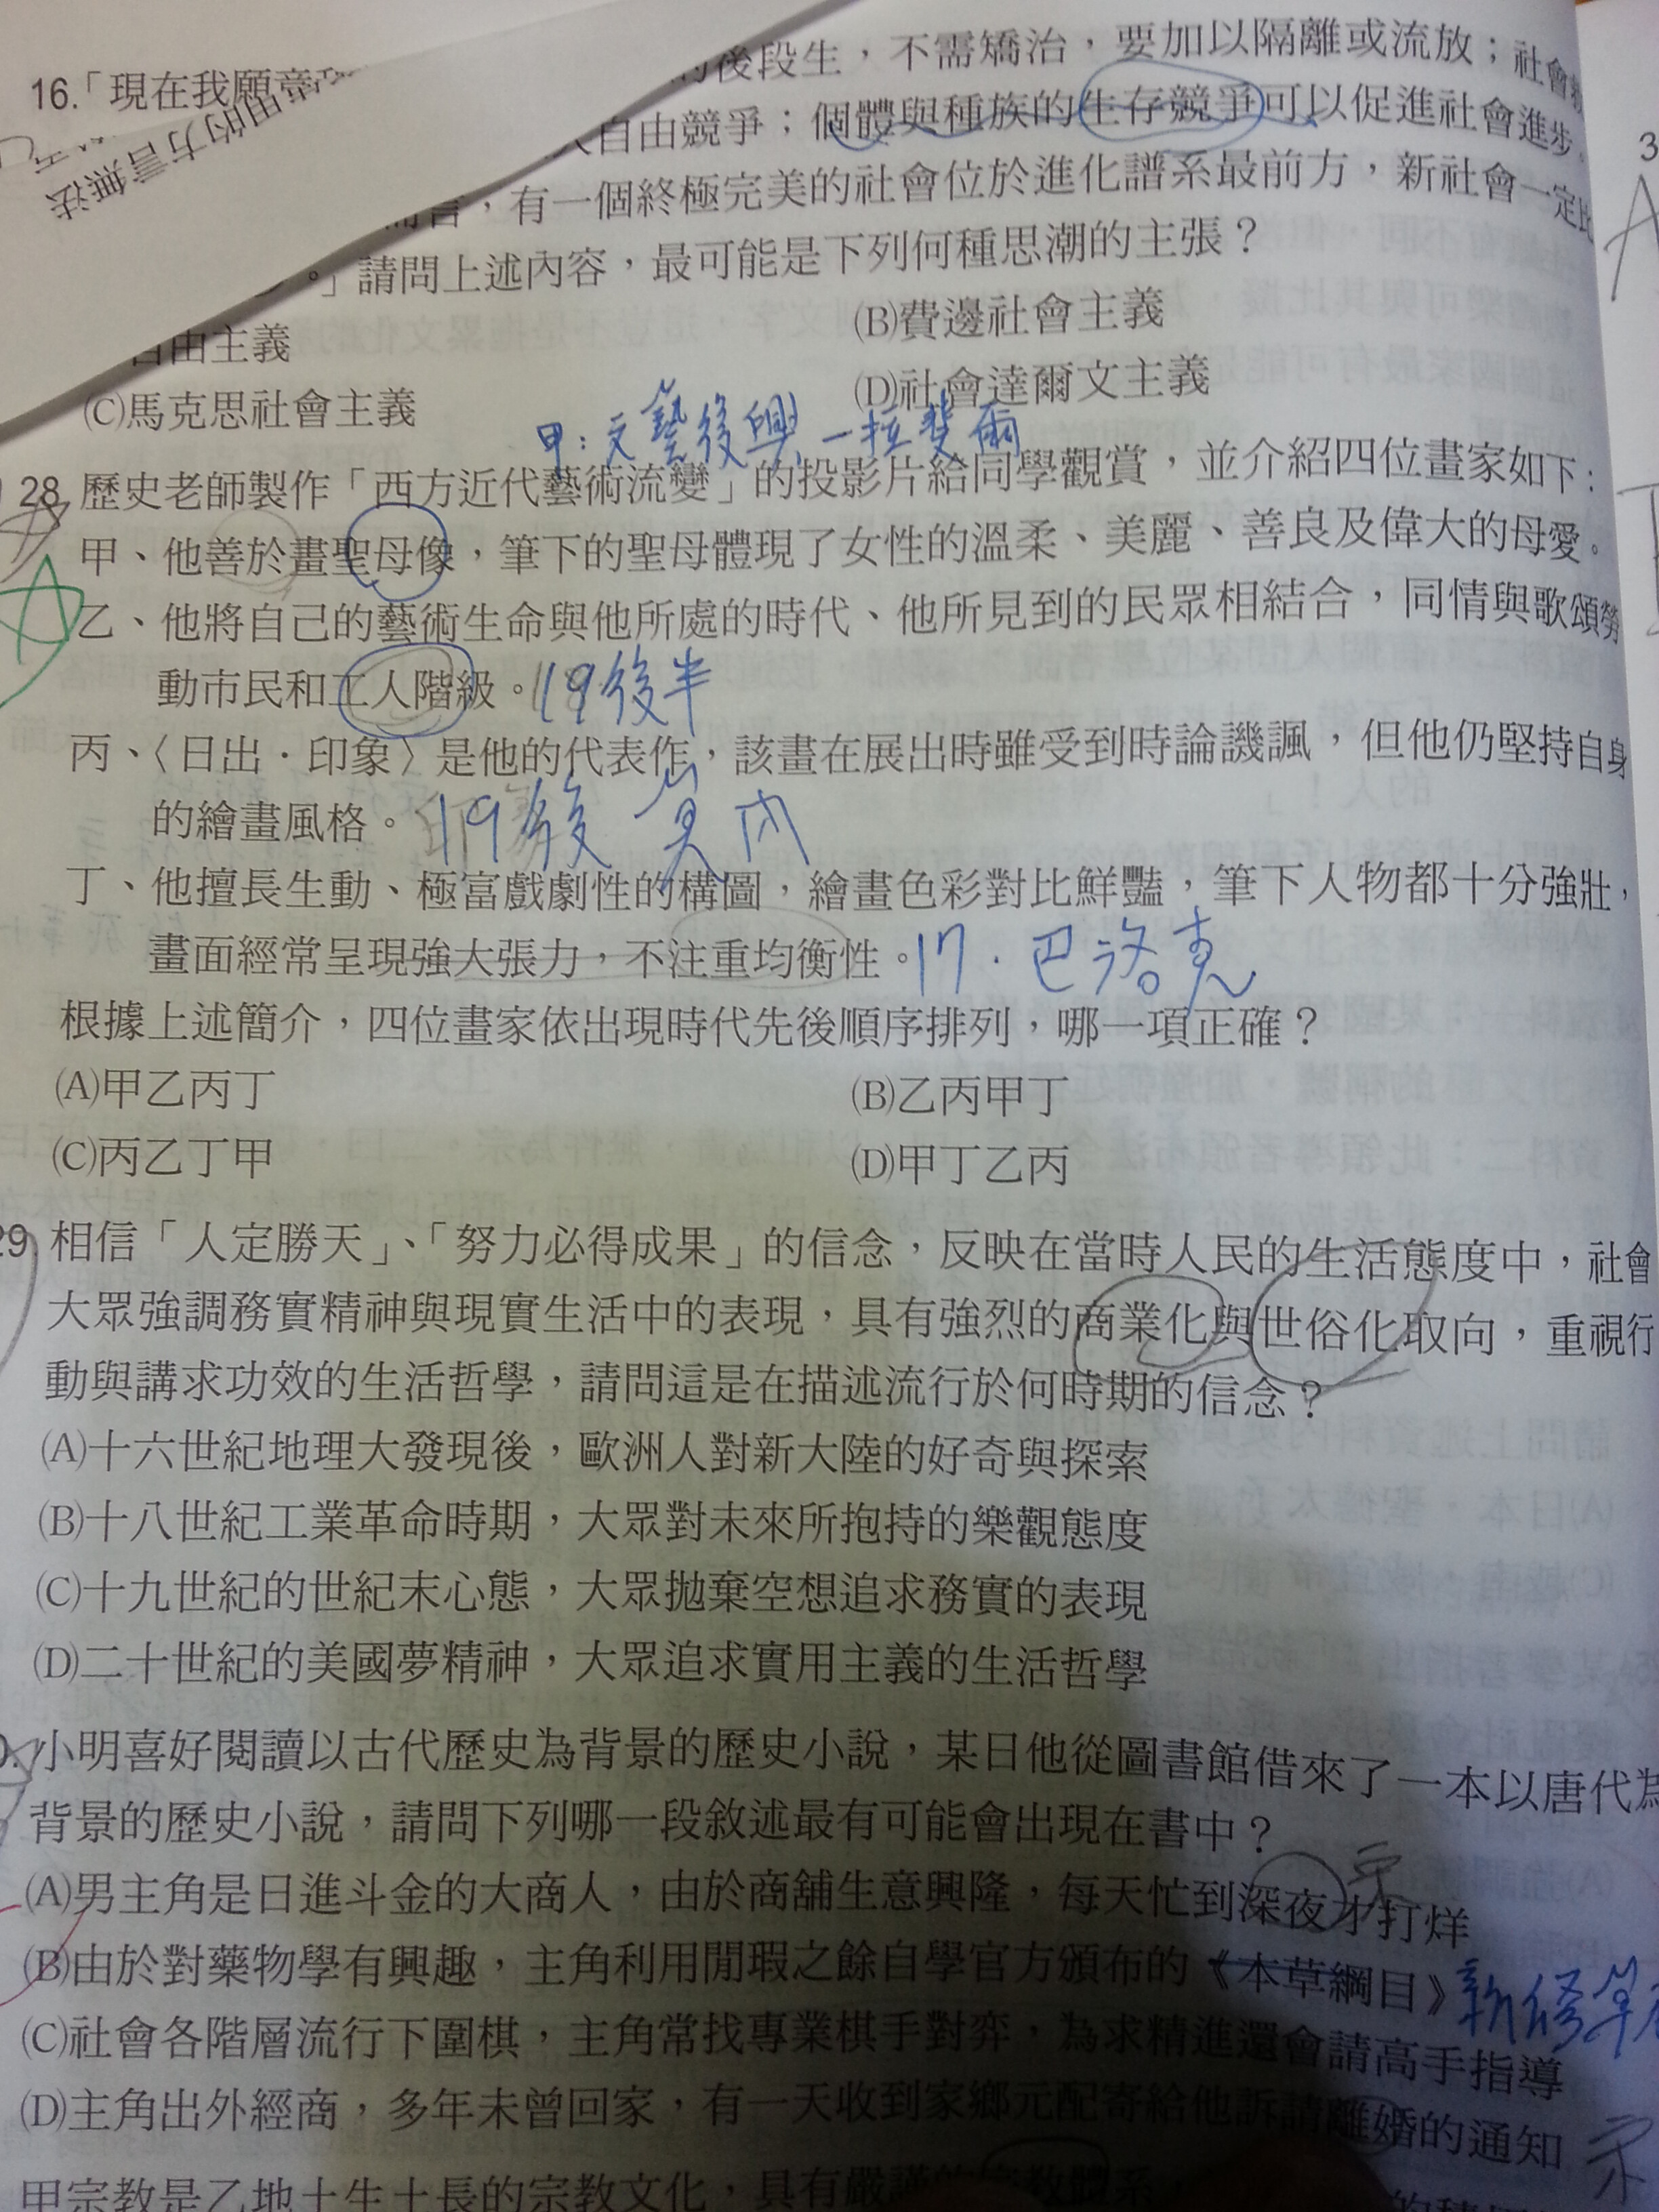 16.「現在我願意
用的方言無法
後段生，不需矯治，要加以隔離或流放；社會
自由競爭；個體與種族的生存競爭可以促進社會進步。
而言，有一個終極完美的社會位於進化譜系最前方，新社會一定比
。」請問上述內容，最可能是下列何種思潮的主張？
自由主義
(B)費邊社會主義
(C)馬克思社會主義
(D)社會達爾文主義
甲：文藝後興－拉斐爾
28 歷史老師製作「西方近代藝術流變」的投影片給同學觀賞，並介紹四位畫家如下：
甲、他善於畫聖母像，筆下的聖母體現了女性的溫柔、美麗、善良及偉大的母愛。
乙、他將自己的藝術生命與他所處的時代、他所見到的民眾相結合，同情與歌頌勞
動市民和工人階級。19後半
丙、〈日出．印象〉是他的代表作，該畫在展出時雖受到時論譏諷，但他仍堅持自身
的繪畫風格。19後 莫內
丁、他擅長生動、極富戲劇性的構圖，繪畫色彩對比鮮豔，筆下人物都十分強壯，
畫面經常呈現強大張力，不注重均衡性。17．巴洛克
根據上述簡介，四位畫家依出現時代先後順序排列，哪一項正確？
(A)甲乙丙丁
(B)乙丙甲丁
(C)丙乙丁甲
(D)甲丁乙丙
29. 相信「人定勝天」、「努力必得成果」的信念，反映在當時人民的生活態度中，社會
大眾強調務實精神與現實生活中的表現，具有強烈的商業化與世俗化取向，重視行
動與講求功效的生活哲學，請問這是在描述流行於何時期的信念？
(A)十六世紀地理大發現後，歐洲人對新大陸的好奇與探索
(B)十八世紀工業革命時期，大眾對未來所抱持的樂觀態度
(C)十九世紀的世紀末心態，大眾拋棄空想追求務實的表現
(D)二十世紀的美國夢精神，大眾追求實用主義的生活哲學
0. 小明喜好閱讀以古代歷史為背景的歷史小說，某日他從圖書館借來了一本以唐代為
背景的歷史小說，請問下列哪一段敘述最有可能會出現在書中？
宋
(A)男主角是日進斗金的大商人，由於商舖生意興隆，每天忙到深夜才打烊
(B)由於對藥物學有興趣，主角利用閒暇之餘自學官方頒布的《本草綱目》新修草
(C)社會各階層流行下圍棋，主角常找專業棋手對弈，為求精進還會請高手指導
(D)主角出外經商，多年未曾回家，有一天收到家鄉元配寄給他訴請離婚的通知
宋
甲宗教是乙地土生土長的宗教文化，具有嚴謹的宗教體系，